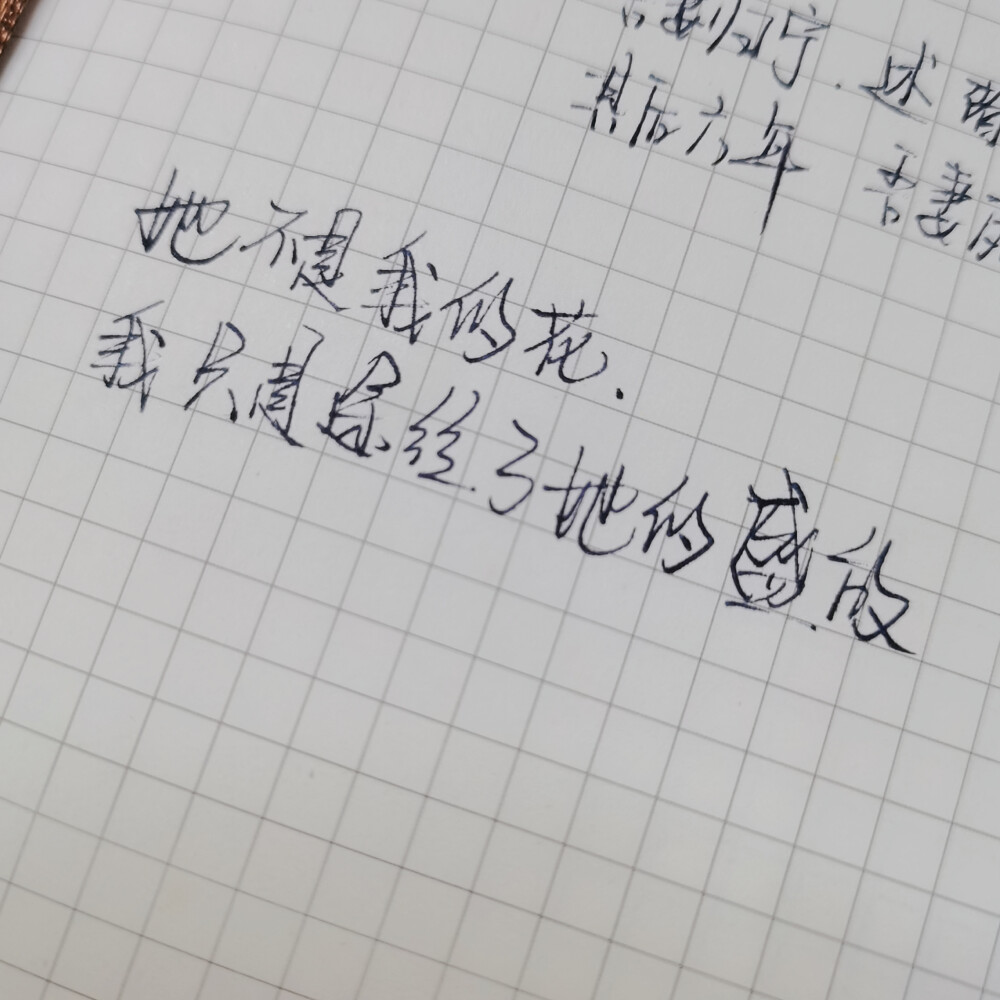 吾妻归宁.述诸
其后六年 吾妻死
她不是我的花.
我只是途经了她的盛放